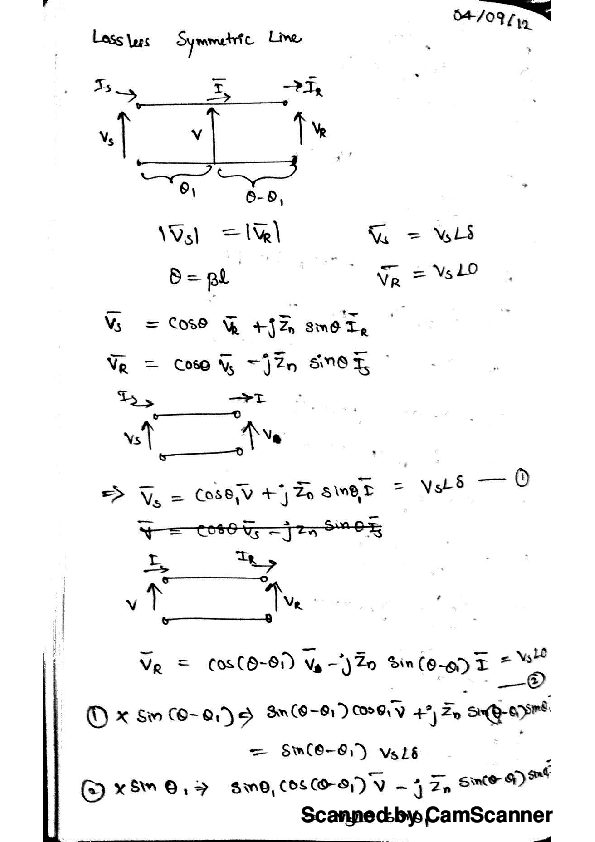 04/09/12
Lossless Symmetric Line
I̅s I̅ I̅R
Vs V VR
θ₁ θ-θ₁
|V̅s| = |V̅R| V̅s = Vs∠δ
θ = βl V̅R = Vs∠0
V̅s = cosθ V̅R + j Z̅n sinθ I̅R
V̅R = cosθ V̅s - j Z̅n sinθ I̅s
Is I
Vs V
⇒ V̅s = cosθ₁ V̅ + j Z̅n sinθ₁ I̅ = Vs∠δ — ①
V̅ = cosθ V̅s - j Zn sinθ I̅s
I IR
V VR
V̅R = cos(θ-θ₁) V̅ - j Z̅n sin(θ-θ₁) I̅ = Vs∠0
— ②
① × sin(θ-θ₁) ⇒ sin(θ-θ₁) cosθ₁ V̅ + j Z̅n sin(θ-θ₁) sinθ₁
= sin(θ-θ₁) Vs∠δ
② × sin θ₁ ⇒ sinθ₁ cos(θ-θ₁) V̅ - j Z̅n sin(θ-θ₁) sinθ₁
Scanned by CamScanner